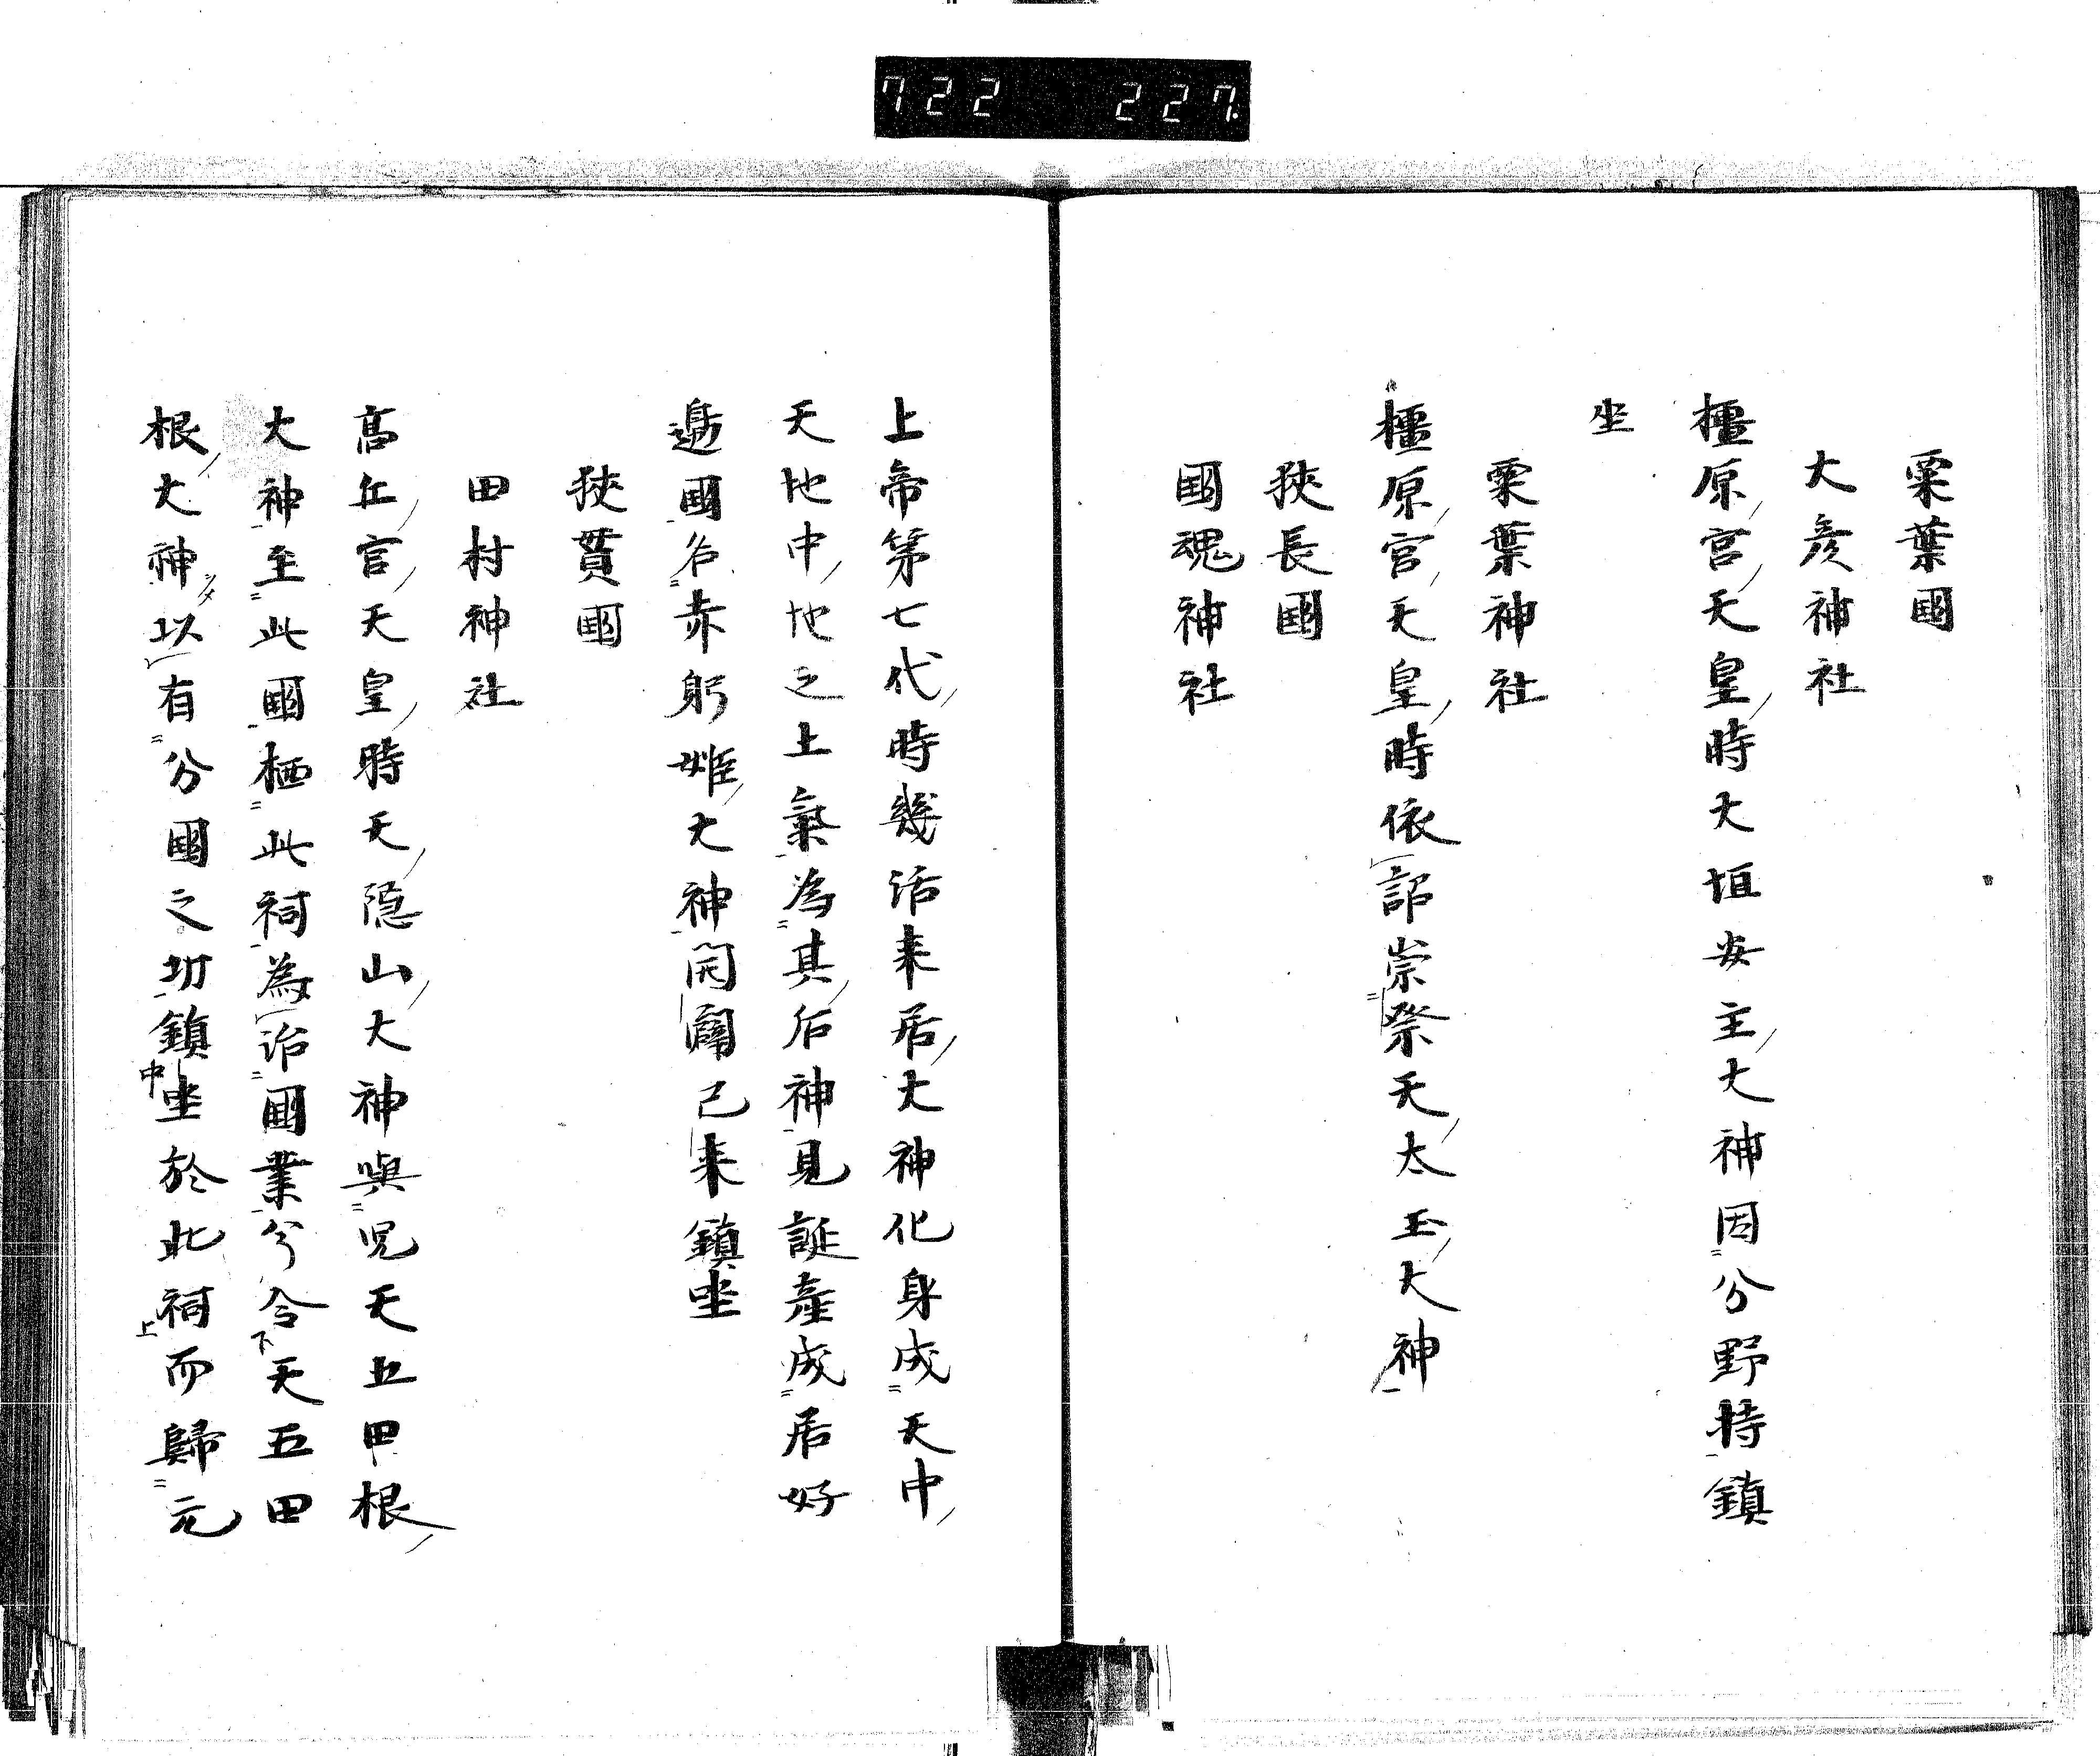 722 227
粟葉國
大彦神社
橿原宮天皇時大垣安主大神因分野特鎮
坐
粟葉神社
橿原宮天皇時依詔崇祭天太玉大神
狹長國
國魂神社
上帝第七代時幾活来居大神化身成天中
天地中地之上氣為其后神見誕産成居好
邊國名赤躬雎大神開闢己来鎮坐
狹貫國
田村神社
高丘宮天皇時天隠山大神與児天五田根
大神至此國栖此祠為治國業兮令天五田
根大神以有分國之功鎮坐於此祠而歸元
中
上
下